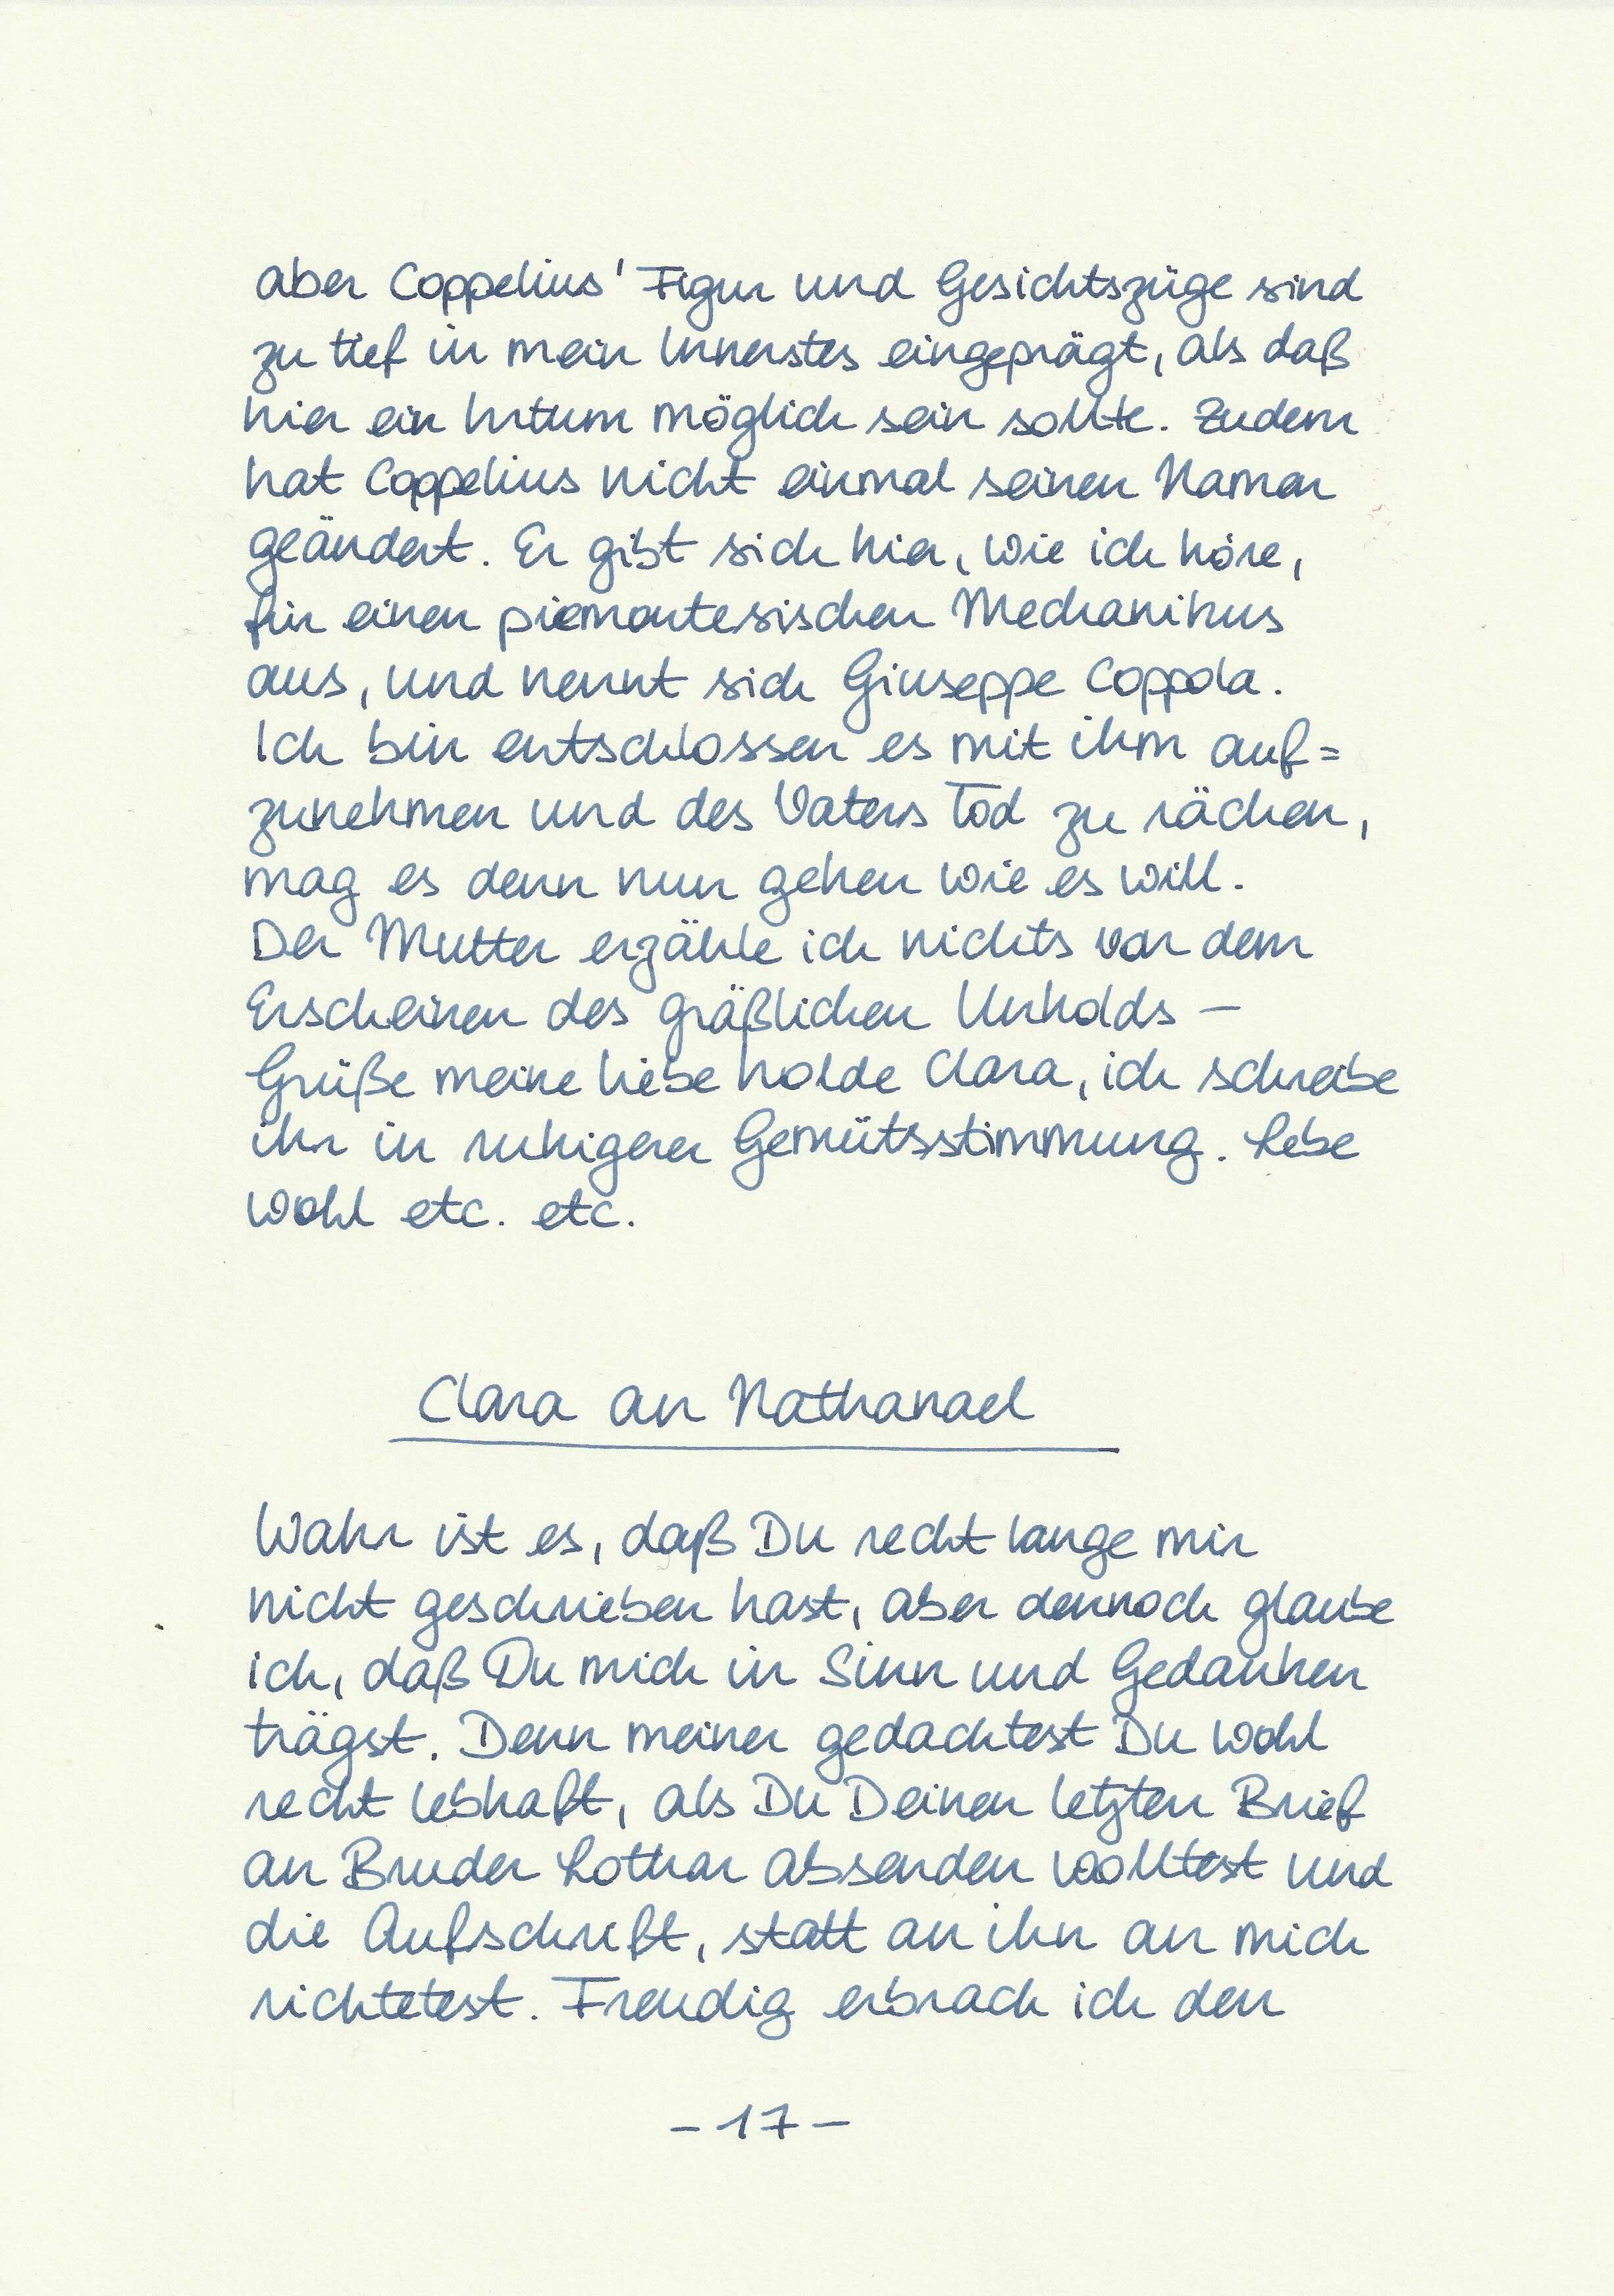 aber Coppelius' Figur und Gesichtszüge sind
zu tief in mein Innerstes eingeprägt, als daß
hier ein Irrtum möglich sein sollte. Zudem
hat Coppelius nicht einmal seinen Namen
geändert. Er gibt sich hier, wie ich höre,
für einen piemontesischen Mechanikus
aus, und nennt sich Giuseppe Coppola.
Ich bin entschlossen es mit ihm auf=
zunehmen und des Vaters Tod zu rächen,
mag es denn nun gehen wie es will.
Der Mutter erzähle ich nichts von dem
Erscheinen des gräßlichen Unholds –
Grüße meine liebe holde Clara, ich schreibe
ihr in ruhigerer Gemütsstimmung. Lebe
wohl etc. etc.
Clara an Nathanael
Wahr ist es, daß Du recht lange mir
nicht geschrieben hast, aber dennoch glaube
ich, daß Du mich in Sinn und Gedanken
trägst. Denn meiner gedachtest Du wohl
recht lebhaft, als Du Deinen letzten Brief
an Bruder Lothar absenden wolltest und
die Aufschrift, statt an ihn an mich
richtetest. Freudig erbrach ich den
– 17 –